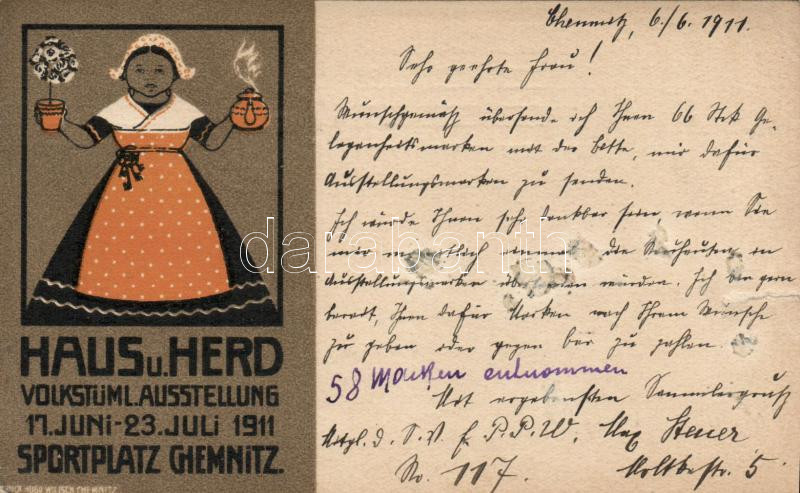 HAUS u. HERD
VOLKSTÜML. AUSSTELLUNG
17. JUNI - 23. JULI 1911
SPORTPLATZ CHEMNITZ.
Chemnitz, 6/6. 1911.
Sehr geehrte Frau!
Wunschgemäß übersende ich Ihnen 66 Stck Ge-
legenheitsmarken mit der Bitte, mir dafür
Ausstellungsmarken zu senden.
Ich würde Ihnen sehr dankbar sein, wenn Sie
mir monatlich einmal die Neuheiten an
Ausstellungsmarken übersenden würden. Ich bin gern
bereit, Ihnen dafür Marken nach Ihrem Wunsche
zu geben oder gegen bar zu zahlen.
58 Marken entnommen
Mit ergebensten Sammlergruß
Mitgl. d. S. V. f. P. P. W. Max
No. 117. Moltkestr. 5
darabanth